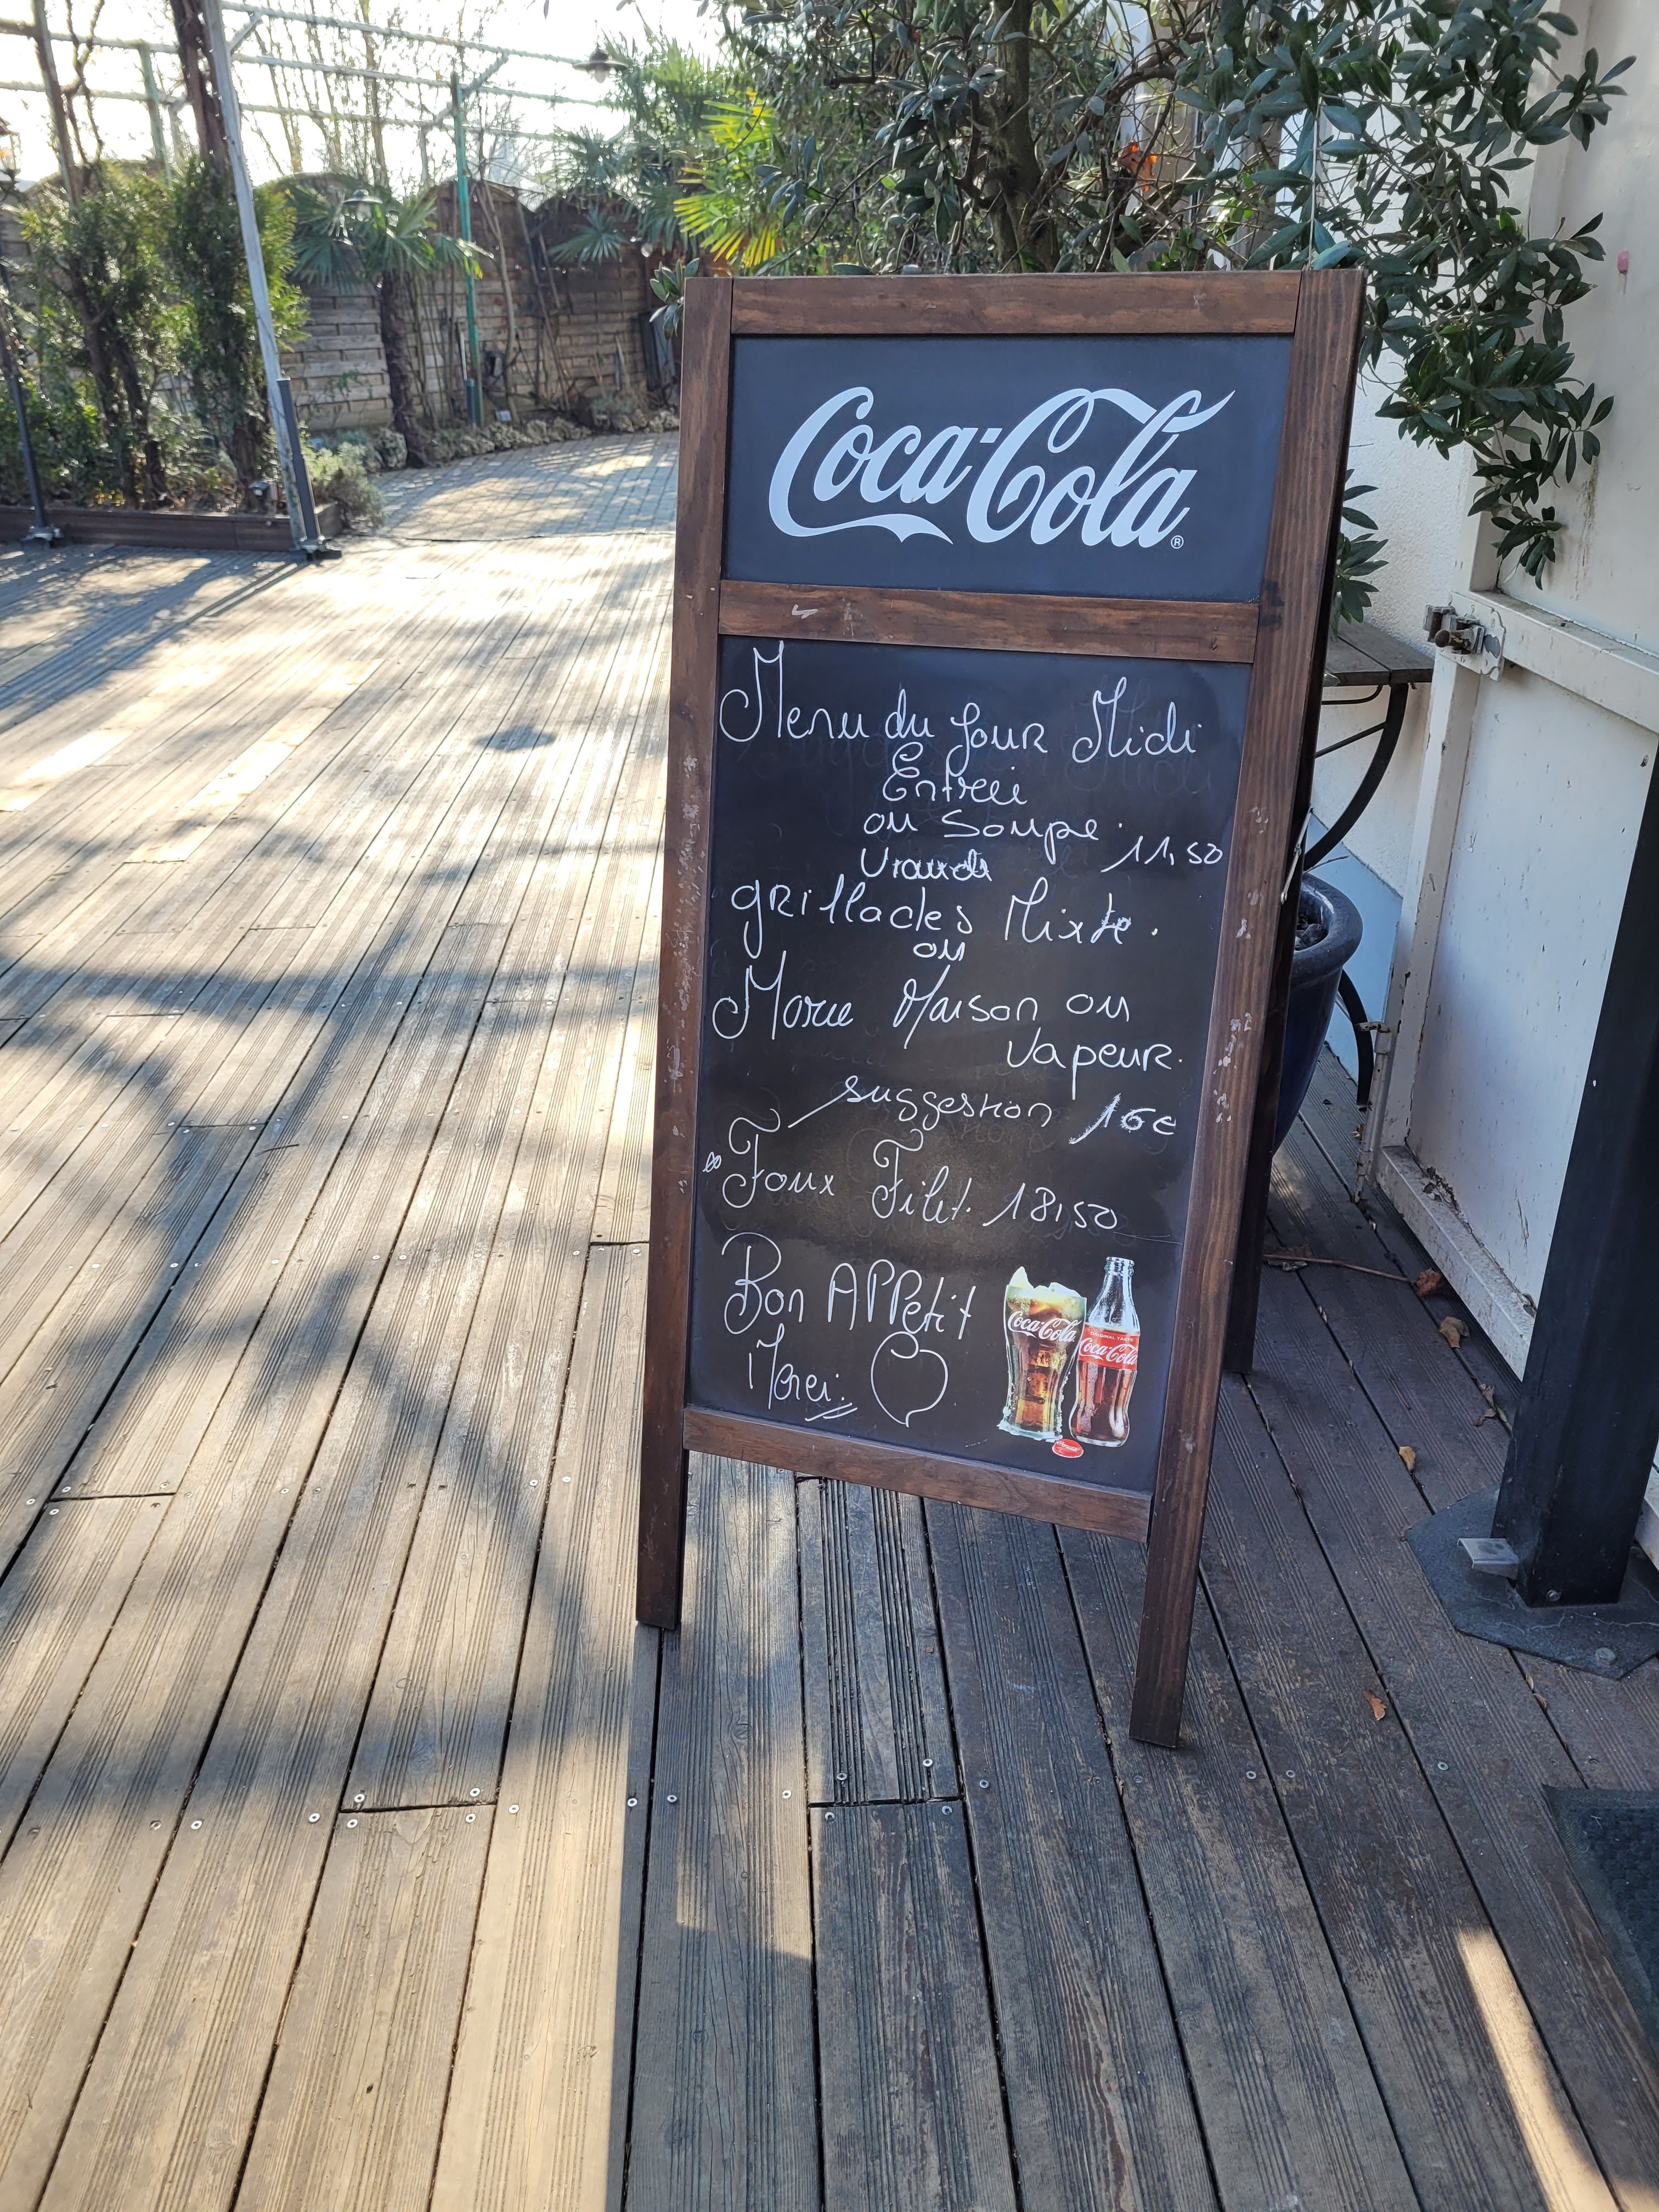 Coca-Cola®
Menu du Jour Midi
Entreé
ou Soupe. 11,50
Viande
grillades Mixte.
ou
Morue Maison ou
Vapeur.
suggestion 16€
Foux Filet. 18,50
Bon APPetit
Merci.
Coca-Cola
ORIGINAL TASTE
Coca-Cola